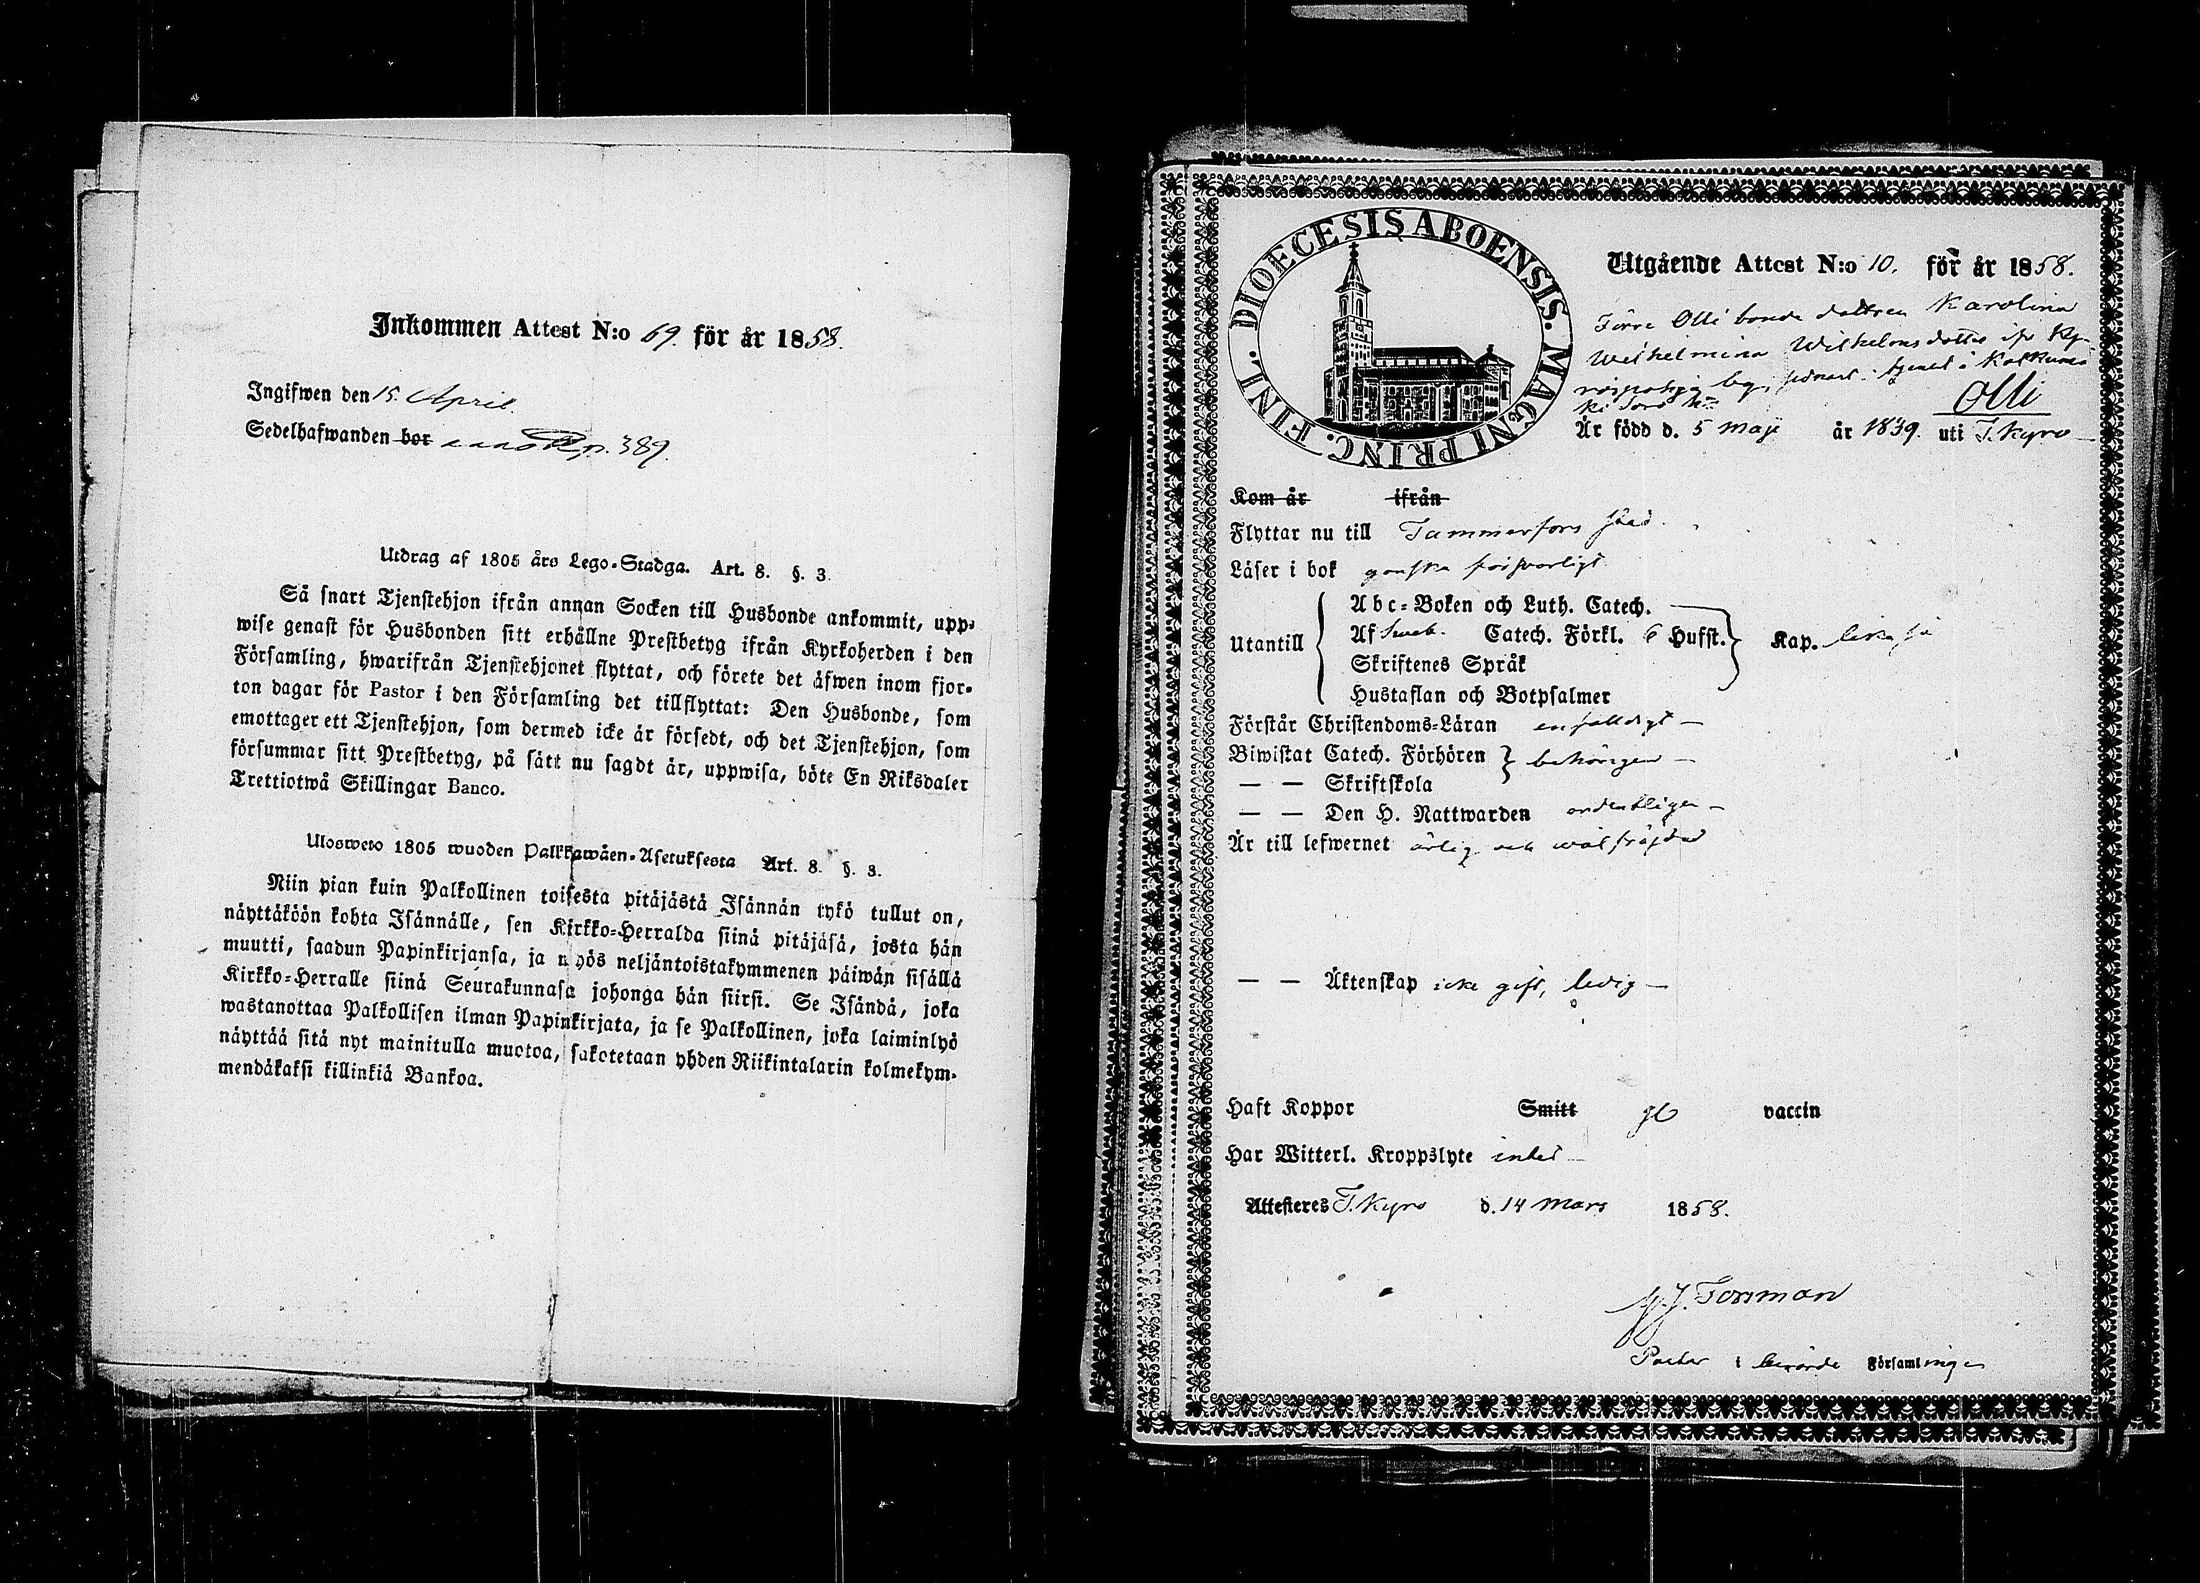 Inkommen Attest N:o 69. för år 1858.
Ingifwen den 15. April.
Sedelhafwanden bor p. 389.
Utdrag af 1805 års Lego-Stadga. Art. 8. §. 3.
Så snart Tjenstehjon ifrån annan Socken till Husbonde ankommit, upp-
wise genast för Husbonden sitt erhållne Prestbetyg ifrån Kyrkoherden i den
Församling, hwarifrån Tjenstehjonet flyttat, och förete det äfwen inom fjor-
ton dagar för Pastor i den Församling det tillflyttat: Den Husbonde, som
emottager ett Tjenstehjon, som dermed icke är försedt, och det Tjenstehjon, som
försummar sitt Prestbetyg, på sätt nu sagdt är, uppwisa, böte En Riksdaler
Trettiotwå Skillingar Banco.
Ulosweto 1805 wuoden Palkkawäen-Asetuksesta Art. 8. §. 3.
Niin pian kuin Palkollinen toisesta pitäjästä Isännän tykö tullut on,
näyttäköön kohta Isännälle, sen Kirkko-Herralda siinä pitäjäsä, josta hän
muutti, saadun Papinkirjansa, ja myös neljäntoistakymmenen päiwän sisällä
Kirkko-Herralle siinä Seurakunnasa johonga hän siirsi. Se Isändä, joka
wastanottaa Palkollisen ilman Papinkirjata, ja se Palkollinen, joka laiminlyö
näyttää sitä nyt mainitulla muotoa, sakotetaan yhden Riikintalarin kolmekym-
mendäkaksi killinkiä Bankoa.
DIOECESIS ABOENSIS. MAGNI PRINC. FINL.
Utgående Attest N:o 10. för år 1858.
Förre Olli bonde dottren Karolina
Wilhelmina Wilhelmsdotter ifr Ky-
tjenat i
Olli
Är född d. 5 Maji år 1839. uti T.Kyro
Kom år ifrån
Flyttar nu till Tammerfors stad.
Läser i bok ganska försvarligt
Utantill
Abc-Boken och Luth. Catech.
Af Sweb. Catech. Förkl. 6 Hufst. Kap. lika så
Skriftenes Språk
Hustaflan och Botpsalmer
Förstår Christendoms-Läran enfaldigt
Biwistat Catech. Förhören behörigen
— — Skriftskola
— — Den H. Nattwarden ordentligen
Är till lefwernet ärlig och wälfräjdad
— — Äktenskap icke gift, ledig
Haft Koppor Smitt vaccin
Har Witterl. Kroppslyte intet
Attesteres T.Kyro d. 14 Mars 1858.
Torsman
Pastor i berörde Församlingen